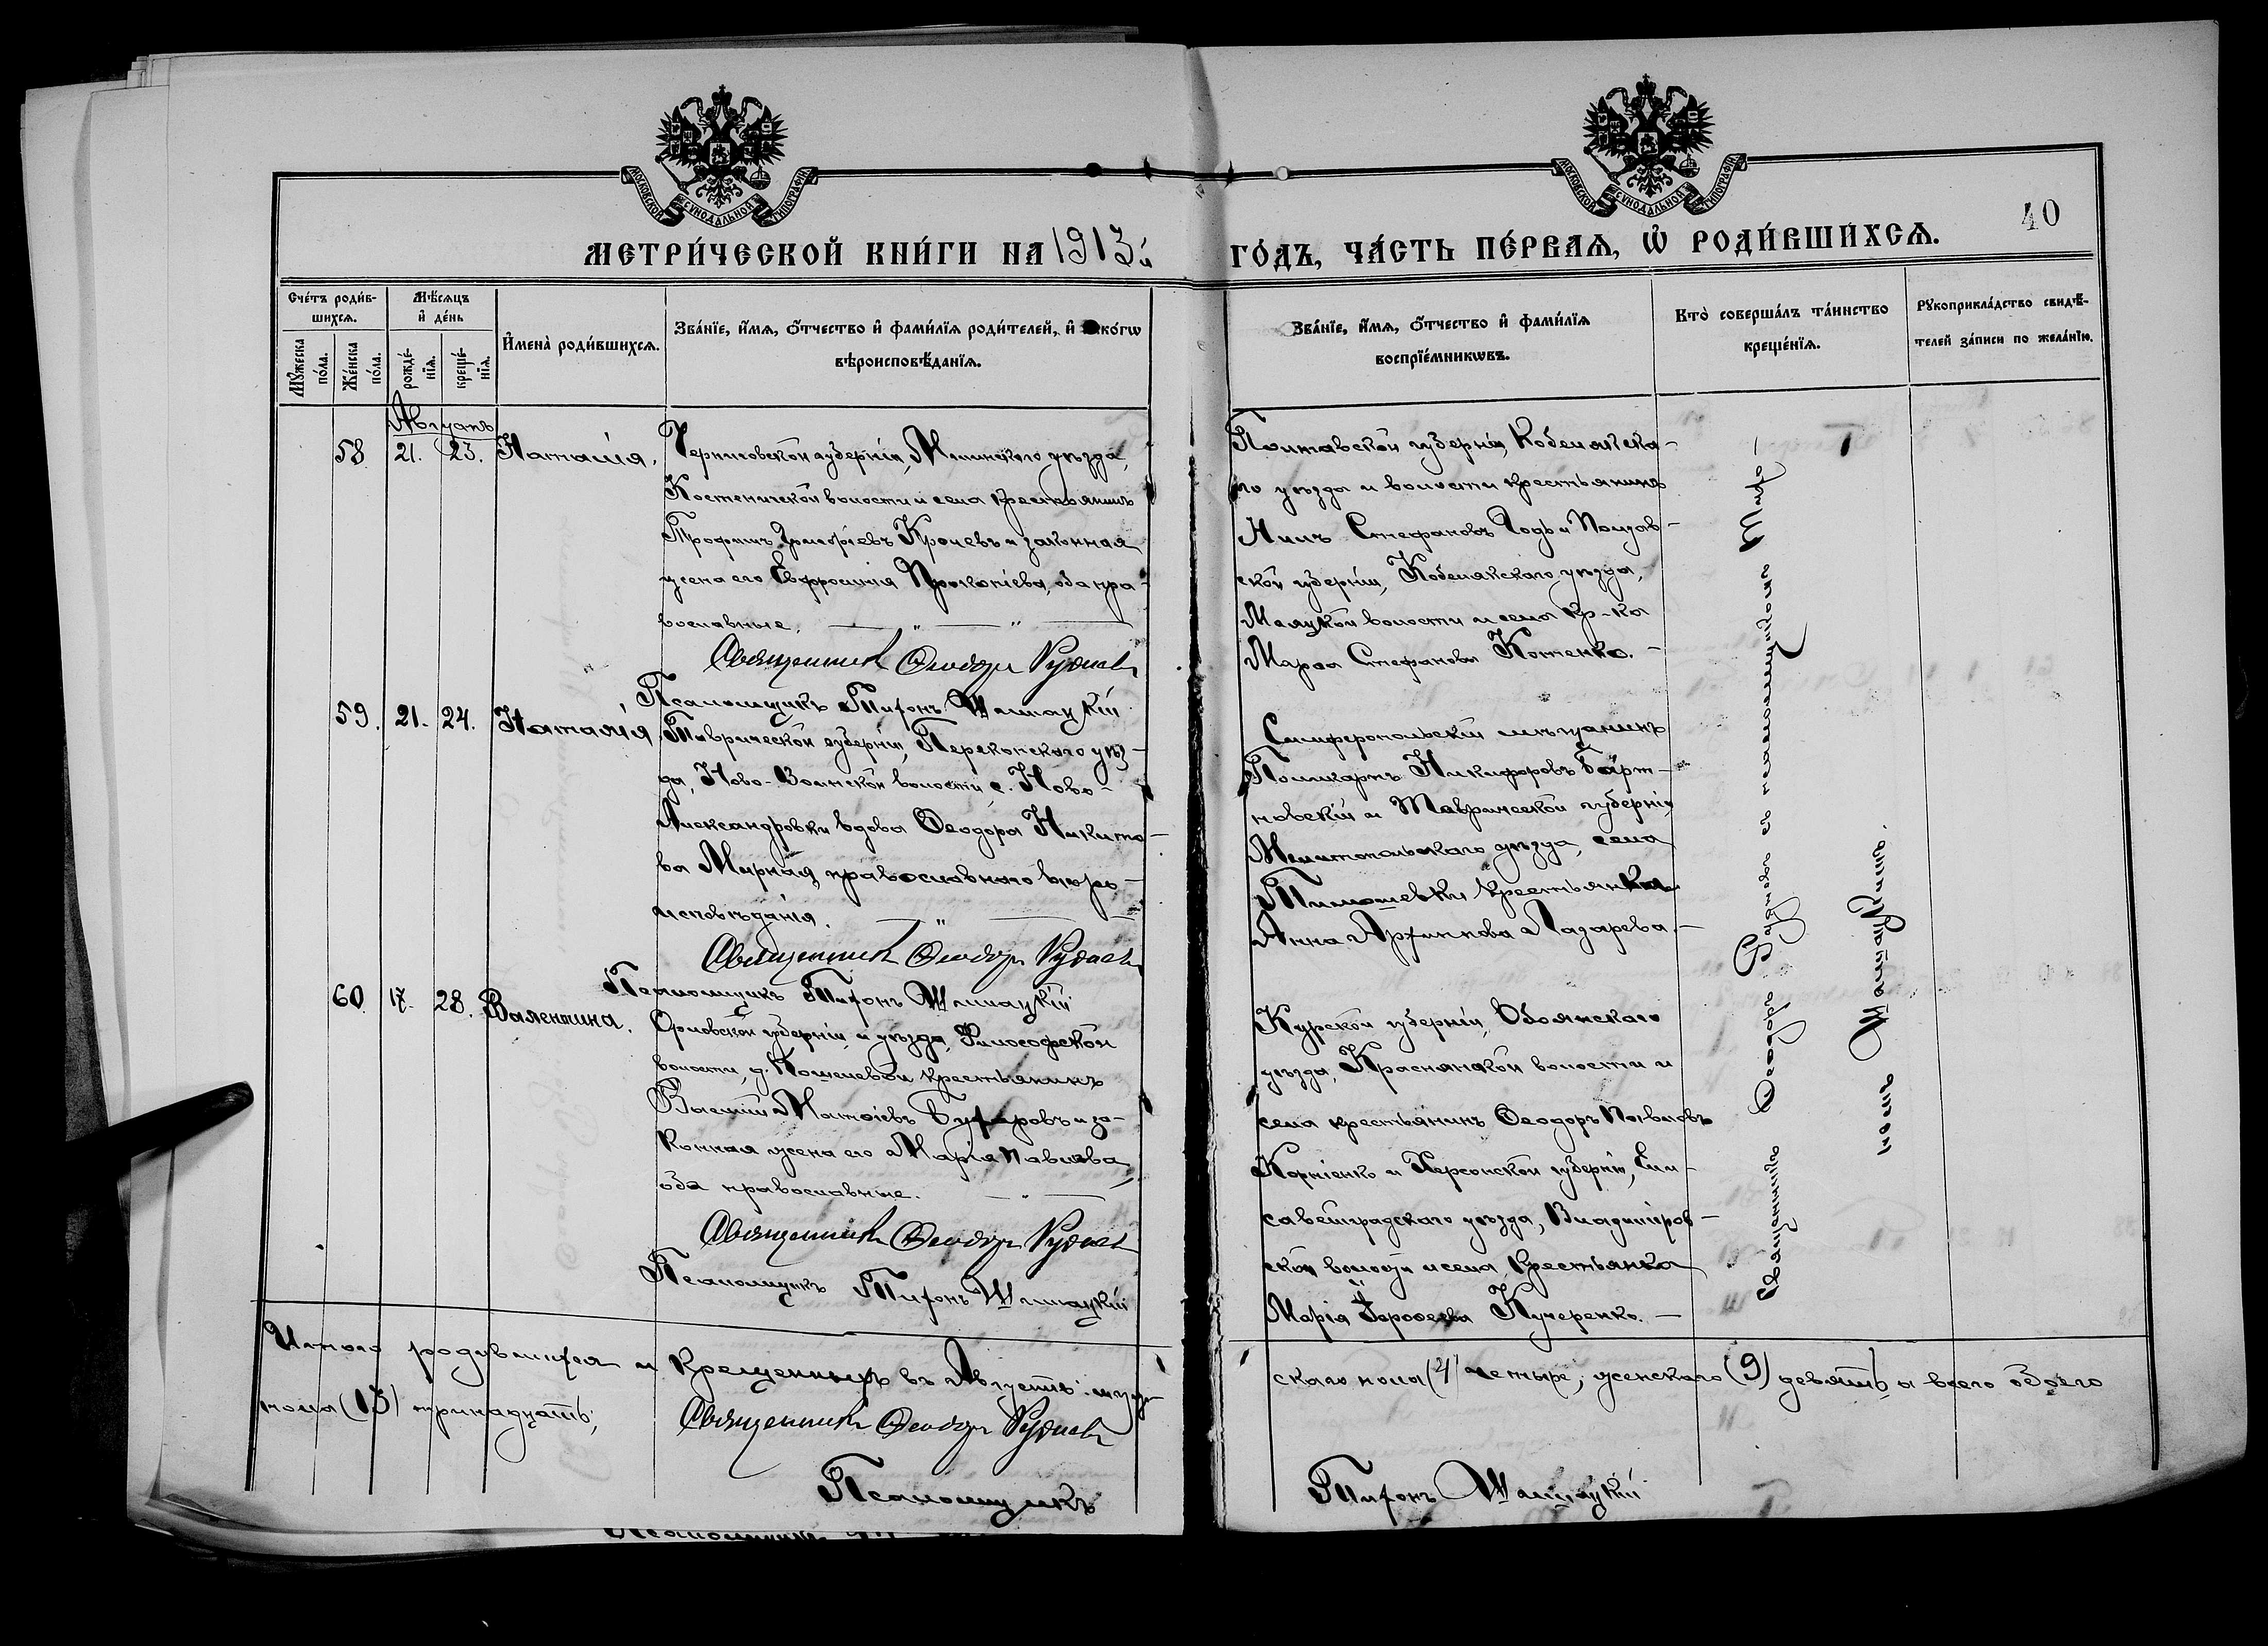 МОСКОВСКОЙ СѴНОДАЛЬНОЙ ТИПОГРАФІИ
МОСКОВСКОЙ СѴНОДАЛЬНОЙ ТИПОГРАФІИ
40
МЕТРИ́ЧЕСКОЙ КНИ́ГИ НА 1913й ГО́ДЪ, ЧА́СТЬ ПЕ́РВАѦ, Ѡ РОДИ́ВШИХСѦ.
Сче́тъ роди́в-
шихсѧ.
Мꙋжеска
по́ла.
Же́нска
по́ла.
Мѣ́сѧцъ
и де́нь
рожде́-
нїѧ.
креще́-
нїѧ.
Имена̀ роди́вшихсѧ.
Зва́нїе, и́мѧ, о́тчество и фами́лїѧ роди́телей, и ко́гѡ
вѣроисповѣ́данїѧ.
Зва́нїе, и́мѧ, о́тчество и фами́лїѧ
воспрїе́мникѡвъ.
Кто̀ соверша́лъ та́инство
креще́нїѧ.
Рꙋкоприкла́дство свидѣ́-
телей за́писи по жела́нїю.
Августъ
58 21. 23. Наталія.
Черниговской губерніи, Мглинскаго уѣзда,
Костеничской волости и села крестьянинъ
Трофимъ Григорьевъ и законная
жена его Евфросинія Прокопіева, оба пра-
вославные.
Священникъ Ѳеодоръ Рудневъ
Псаломщикъ Тихонъ Шпицкій
Полтавской губерніи, Кобелякска-
го уѣзда и волости крестьянинъ
Стефановъ и Полтав-
ской губерніи, Кобелякскаго уѣзда,
волости и села кр-ка
Марѳа Стефанова Котенко.
59. 21. 24. Наталія
Таврической губерніи, Перекопскаго уѣз-
да, Ново- волости, с. Ново-
Александровки вдова Ѳеодора Никито-
ва Мирная, православнаго вѣро-
исповѣданія.
Священникъ Ѳеодоръ Рудневъ
Псаломщикъ Тихонъ
Симферопольскій мѣщанинъ
Поликарпъ Никифоровъ Барт-
новскій и Таврической губерніи,
Мелитопольскаго уѣзда, села
Тимошевки крестьянка
Анна Архипова Лазарева.
60. 17. 28. Валентина.
Орловской губерніи и уѣзда, Философской
волости, д. Кошелевой крестьянинъ
Василій Матѳіевъ и за-
конная жена его Марія Павлова,
оба православные.
Священникъ Ѳеодоръ Рудневъ
Псаломщикъ Тихонъ
Курской губерніи, Обоянскаго
уѣзда, Краснянской волости и
села крестьянинъ Ѳеодоръ Павловъ
Корніенко и Херсонской губерніи, Ели-
саветградскаго уѣзда, Владиміров-
ской волости и села крестьянка
Марія Кучеренко.
Священникъ Ѳеодоръ Рудневъ съ псаломщикомъ Тихо-
номъ
Итого родившихся и крещенныхъ въ Августѣ: муж- скаго пола (4) четыре; женскаго (9) девять, а всего обоего
пола (13) тринадцать;
Священникъ Ѳеодоръ Рудневъ
Псаломщикъ Тихонъ